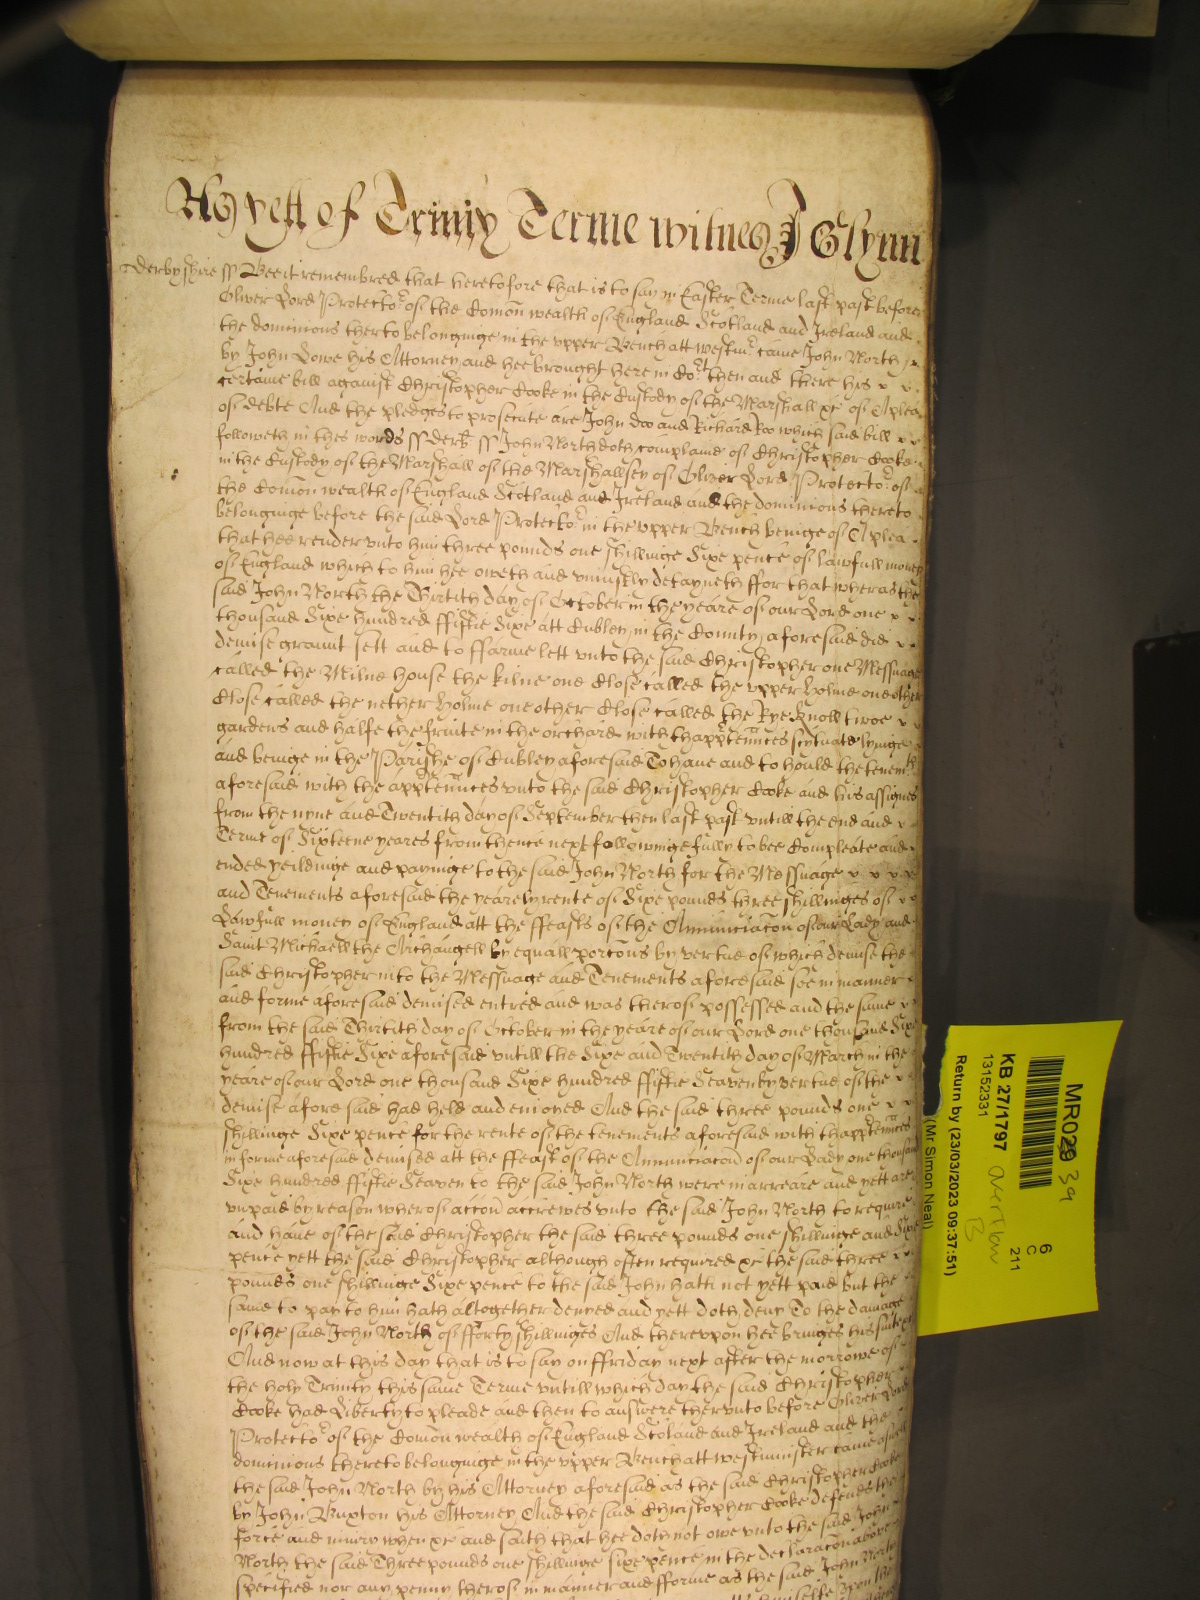 As yett of Trinity Terme witnes J Glynn
Derbyshire ss Bee it remembred that heretofore that is to say in Easter Terme last past before
Oliver Lord Protector of the Comon wealth of England Scotland and Ireland and
the dominions thereto belonginge in the upper Bench att westmr came John North
by John Lowe his Attorney and hee brought here in Cort then and there his
certaine bill against Christopher Cooke in the Custody of the Marshall &c of A plea
of debte And the pledges to prosecute are John doo and Richard Roo which said bill
followeth in thes words ss derb ss John North doth complaine of Christopher Cooke
in the Custody of the Marshall of the Marshallsey of Oliver Lord Protector of
the Comon wealth of England Scotland and Ireland and the dominions thereto
belonginge before the said Lord Protector in the upper Bench beinge of A plea
that hee render unto him three pounds one shillinge Sixe pence of lawfull money
of England which to him hee oweth and uniustly detayneth ffor that wheras the
said John North the Thirtith day of October in the yeare of our Lord one
thousand Sixe hundred ffiftie Sixe att Cubley in the County aforesaid did
demise graunt sett and to ffarme lett unto the said Christopher one Messuage
called the Milne house the kilne one Close called the upper Holme one other
Close called the nether Holme one other Close called the Rye Knoll twoe
gardens and halfe the fruite in the orchard with thapptennces scytuate lyinge
and beinge in the Parishe of Cubley aforesaid To have and to hould the tenemts
aforesaid with the apptennces unto the said Christopher Cooke and his assignes
from the nyne and Twentith day of September then last past untill the end and
Terme of Sixteene yeares from thence next followinge fully to bee Compleate and
ended yeildinge and payinge to the said John North for the Messuage
and Tenements aforesaid the yearely rente of Sixe pounds three shillinges of
Lawfull money of England att the ffeasts of the Annunciacon of our Lady and
Saint Michaell the Archangell by equall porcons by vertue of which demise the
said Christopher into the Messuage and Tenements aforesaid soe in manner
and forme aforesaid demised entred and was therof possessed and the same
from the said Thirtith day of October in the yeare of our Lord one thousand Sixe
hundred ffiftie Sixe aforesaid untill the Sixe and Twentith day of March in the
yeare of our Lord one thousand Sixe hundred ffiftie Seaven by vertue of the
demise aforesaid had held and enioyed And the said three pounds one
shillinge Sixe pence for the rente of the tenements aforesaid with thapptennces
in forme aforesaid demised att the ffeast of the Annunciacon of our Lady one thousand
Sixe hundred ffiftie Seaven to the said John North were in arreare and yett are
unpaid by reason wherof accon accrewes unto the said John North to require
and have of the said Christopher the said three pounds one shillinge and Sixe
pence yett the said Christopher although often required &c the said three
pounds one shillinge Sixe pence to the said John hath not yett paid but the
same to pay to him hath altogether denyed and yett doth deny To the damage
of the said John North of fforty shillinges And thereupon hee bringes his suite &c
And now at this day that is to say on ffriday next after the morrowe of
the holy Trinity this same Terme untill which day the said Christopher
Cooke had Liberty to pleade and then to answere therunto before Oliver Lord
Protector of the Comon wealth of England Scotland and Ireland and the
dominions thereto belonginge in the upper Bench att westminster came aswell
the said John North by his Attorney aforesaid as the said Christopher Cooke
by John Buxton his Attorney And the said Christopher Cooke defends the
force and iniury when &c and saith that hee doth not owe unto the said John
North the said Three pounds one shillinge sixe pence in the declaracon above
specified nor any penny therof in manner and fforme as the said John North
himselfe upon the
MR029 39
KB 27/1797
13152331
Return by (23/03/2023 09:37:51)
(Mr Simon Neal)
6
C
211